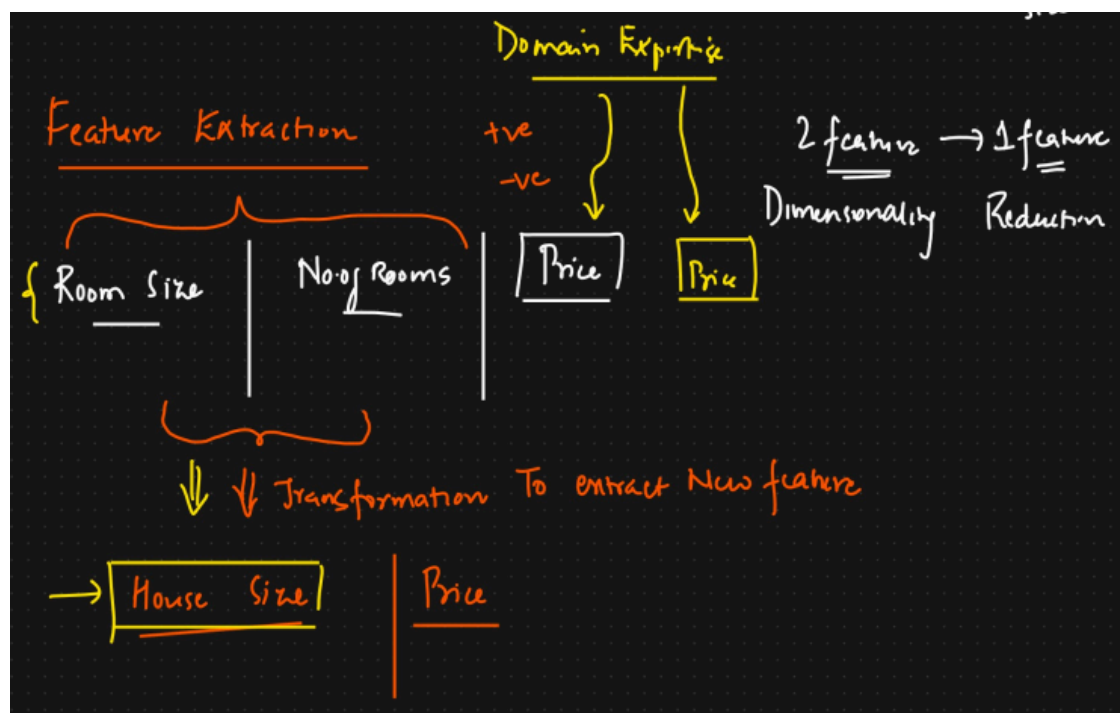 Domain Expertise
Feature Extraction
+ve
-ve
2 feature → 1 feature
Dimensionality Reduction
Room Size
No. of Rooms
Price
Price
Transformation To extract New feature
House Size
Price